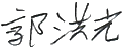 郭洪光